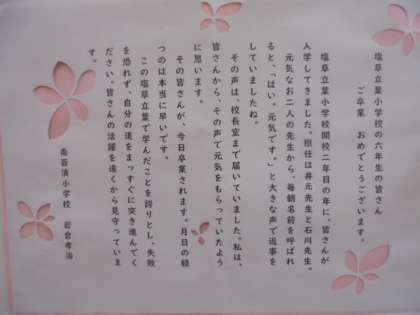 塩草立葉小学校の六年生の皆さん
ご卒業　おめでとうございます。
塩草立葉小学校開校二年目の年に、皆さんが
入学してきました。担任は井元先生と石川先生。
元気なお二人の先生から、毎朝名前を呼ばれ
ると、「はい。元気です。」と大きな声で返事を
していましたね。
その声は、校長室まで届いていました。私は、
皆さんから、その声で元気をもらっていたよう
に思います。
その皆さんが、今日卒業されます。月日の経
つのは本当に早いです。
この塩草立葉で学んだことを誇りとし、失敗
を恐れず、自分の道をまっすぐに突き進んでく
ださい。皆さんの活躍を遠くから見守っていま
す。
南百済小学校　岩倉孝治